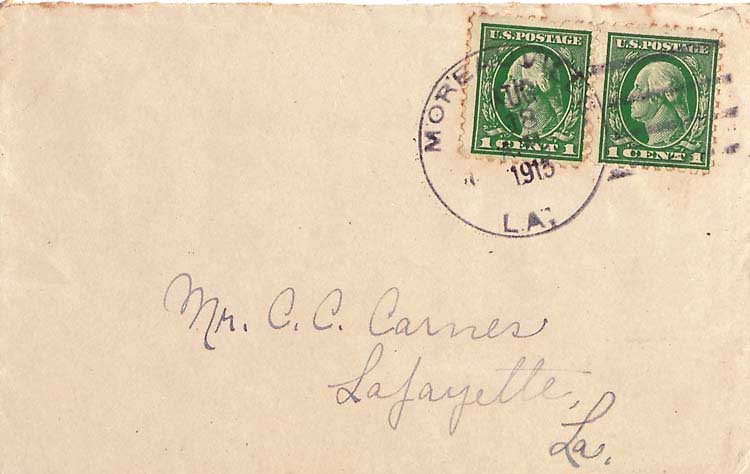 U.S. POSTAGE
1 CENT 1
U.S. POSTAGE
1 CENT 1
AUG
1915
LA.
Mr. C. C. Carnes
Lafayette,
La.